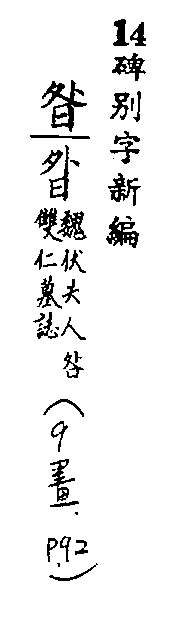 14碑別字新編
昝
魏伏夫人昝
雙仁墓誌
(9畫. P.92)